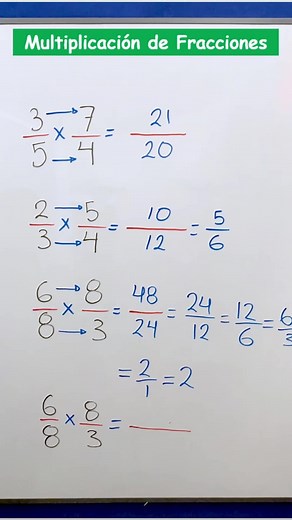 Multiplicación de Fracciones
3/5 x 7/4 = 21/20
2/3 x 5/4 = 10/12 = 5/6
6/8 x 8/3 = 48/24 = 24/12 = 12/6 = 6/3
= 2/1 = 2
6/8 x 8/3 =